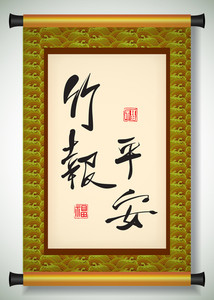 竹報
平安
福